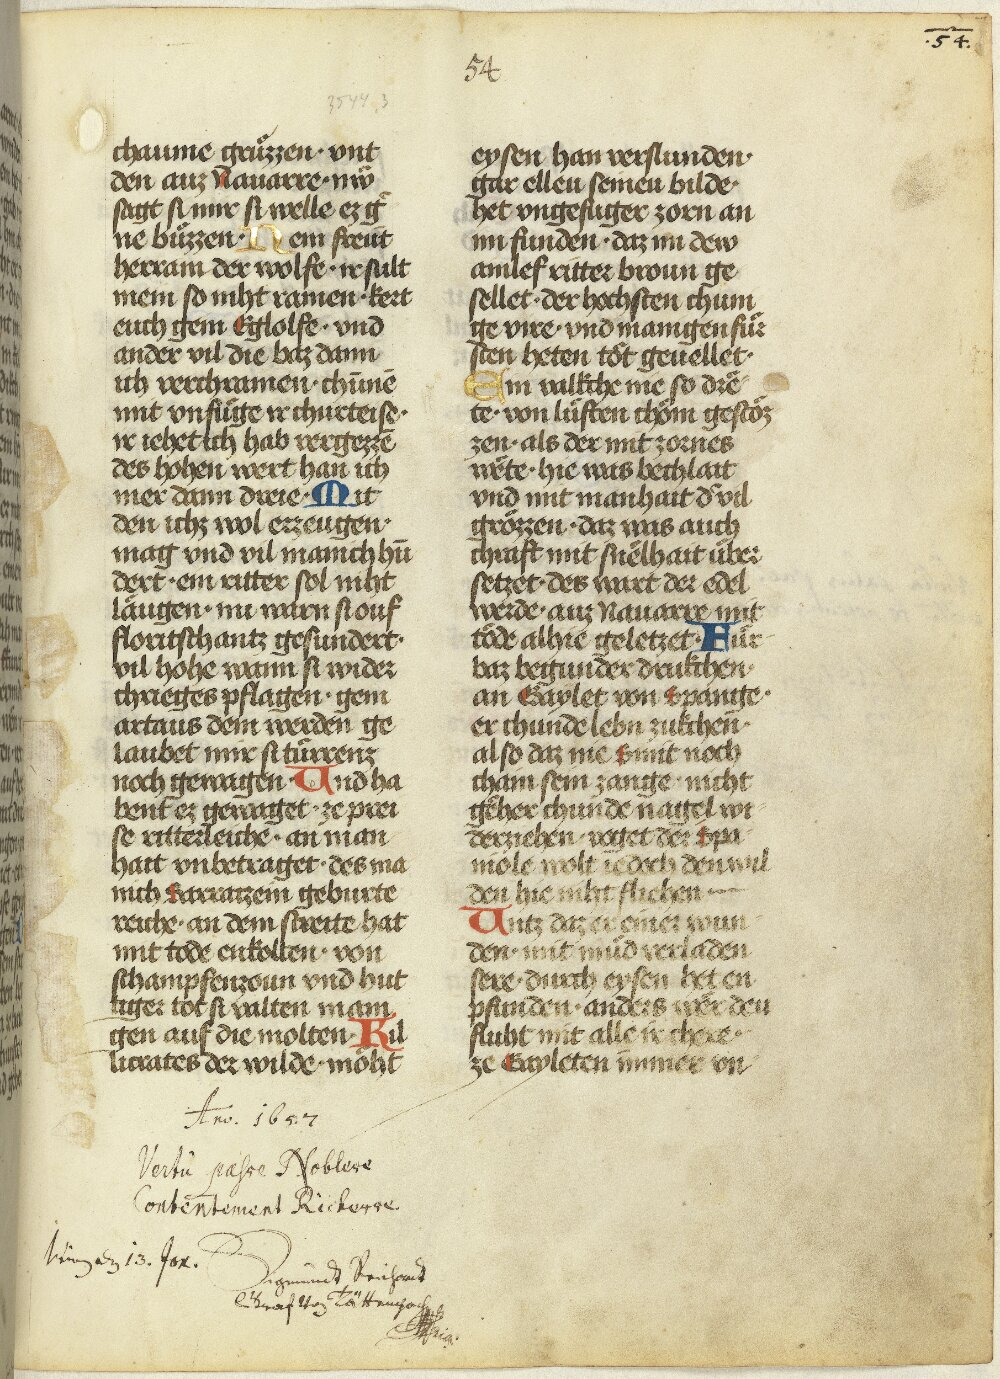 .54.
54
3544 3
chaume grüzzen · vnt
den auz Nauarre · niv̈
sagt si mir si welle ez g
ne büzzen · Nem freut
herrain der wolfe · ir sult
mein so niht ramen · kert
euch gein Eglolfe · vnd
ander vil die baz dann
ich verchramen · chünnē
mit vnfüge ir churteise ·
ir iehet ich hab vergezzē
des hohen wert han ich
mer dann dreie · Mit
den ichz wol erzeugen ·
mag vnd vil manich hū
dert · ein ritter sol niht
läugen · nu warn si ouf
floritschantz gesundert ·
vil hohe wann si wider
chrieges pflagen · gein
artaus dem werden ge
laubet mir si türrenz
noch gewagen · Und ha
bent ez gewaget · ze prei
se ritterleiche · an man
hait vnbetraget · des ma
nich Sarratzein geburte
reiche · an dem streite hat
mit tode enkolten · von
schampfenzoun vnd hut
tiger tot si valten mani
gen auf die molten · Kil
licrates der wilde · möht
eysen han verslunden ·
gar elleu seineu bilde ·
het vngefuger zorn an
im funden · daz im dew
amlef ritter broun ge
sellet · der hochsten chuni
ge vire · vnd manigen für
sten heten töt geuellet ·
Ein valkche nie so drē
te · von lüften chöm gestöz
zen · als der mit zornes
wete · hie was bechlait
vnd mit manhait d vil
grözzen · daz was auch
chraft mit snelhait über
setzet · des wart der edel
werde · auz Nauarre mit
töde alhie geletzet · Für
baz begunder drukchen ·
an Gaylet von Spange ·
er chunde lebn zukchen ·
also daz nie Smit noch
chain sein zange · nicht
geher chunde nagel wi
derziehen · voget der Spa
niole wolt iedoch den wil
den hie niht fliehen
Untz daz er einer wun
den · mit müd verladen
sere · durch eysen het en
pfunden · anders wer den
fluht mit alle ir chere ·
ze Gayleten immer vn
Ano. 1657
Vertü passe Noblesse
Contentement Richesse.
den 13. Jan.
Sigmundt Reichardt
Graf von Tättenpach